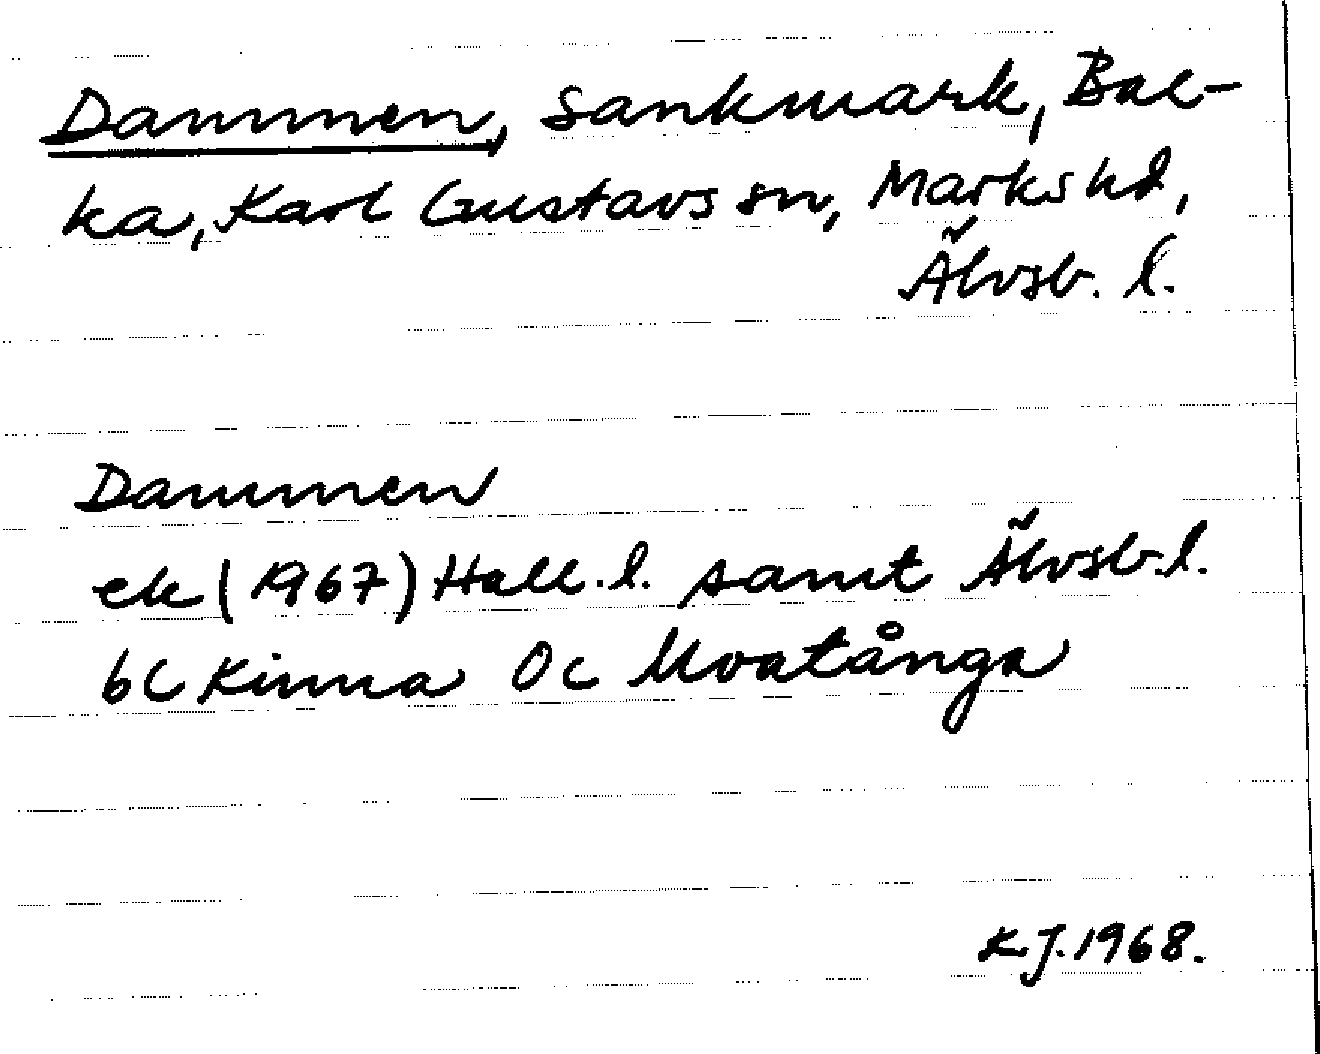 Dammen, sankmark, Bac-
ka, Karl Gustavs sn, Marks hd,
Älvsb. l.
Dammen
ek (1967) Hall. l. samt Älvsb. l.
6C Kinna 0c Mvatånga
K.J. 1968.